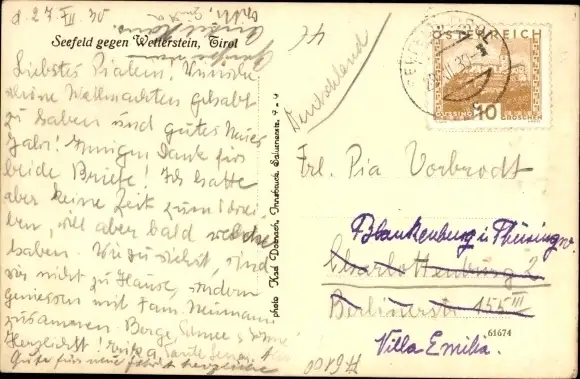 d. 27 XII 30
Seefeld gegen Wetterstein, Tirol
Liebstes Piatem! Wünsche
schöne Weihnachten gehabt
zu haben und gutes Neues
Jahr! Innigen Dank für
beide Briefe! Ich hatte
aber keine Zeit zum Schrei-
ben, will aber bald
haben. Wie du siehst, sind
wir nicht zu Hause, sondern
geniessen mit Fam. Neumann
zusammen Berge, Schnee & Sonne
Herzlichst! Erika
Gute für neue Jahr herzliche
photo Karl Dornach, Innsbruck,
Deutschland
ÖSTERREICH
GÜSSING
10
GROSCHEN
Frl. Pia Vorbrodt
Blankenburg i. Thüringw.
Charlottenburg 2
Berlinerstr 155 III
Villa Emilia.
61674